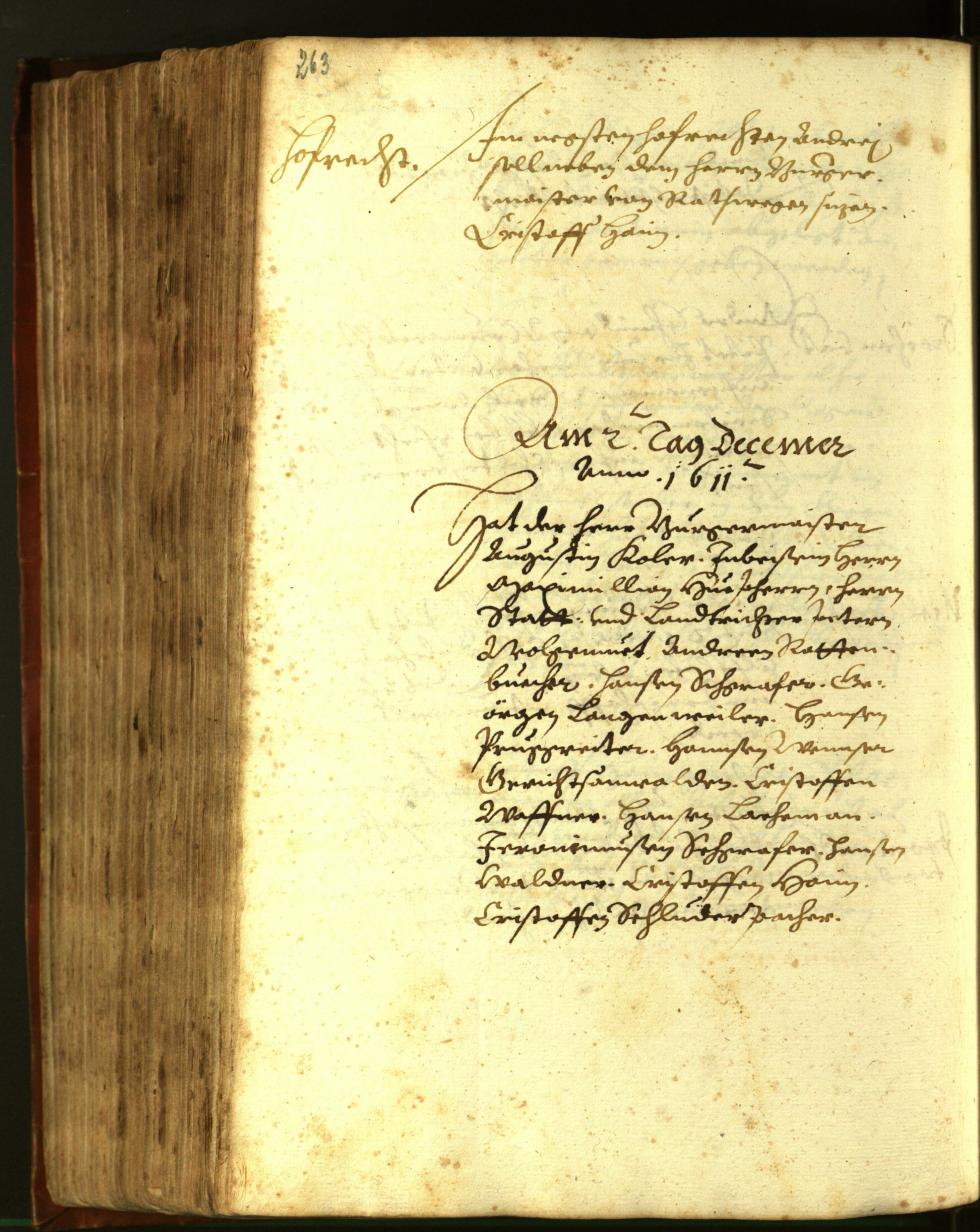 263
Hofrecht.
Im negsten hofrechten Andrej
soll neben dem herrn Burger-
maister von Rats wegen sizen.
Cristoff Haim.
Am 2. Tag Decemer
Anno .1611.
Hat der herr Burgermaister
Augustin Koler. In beisein herrn
Maximillian herrn
Statt- und Landtrichter Petern
Wolgemuet. Andreen Ratten-
buecher. Hansen Schgrafer. Ge-
örgen Langenweiler. Hansen
Pruggreiter. Hannsen
Gerichtsanwalden. Cristoffen
Waffner. Hansen Lacheman.
Jeronimusen Schgrafer. Hansen
Waldner. Cristoffen Haim.
Cristoffen Schluderpacher.